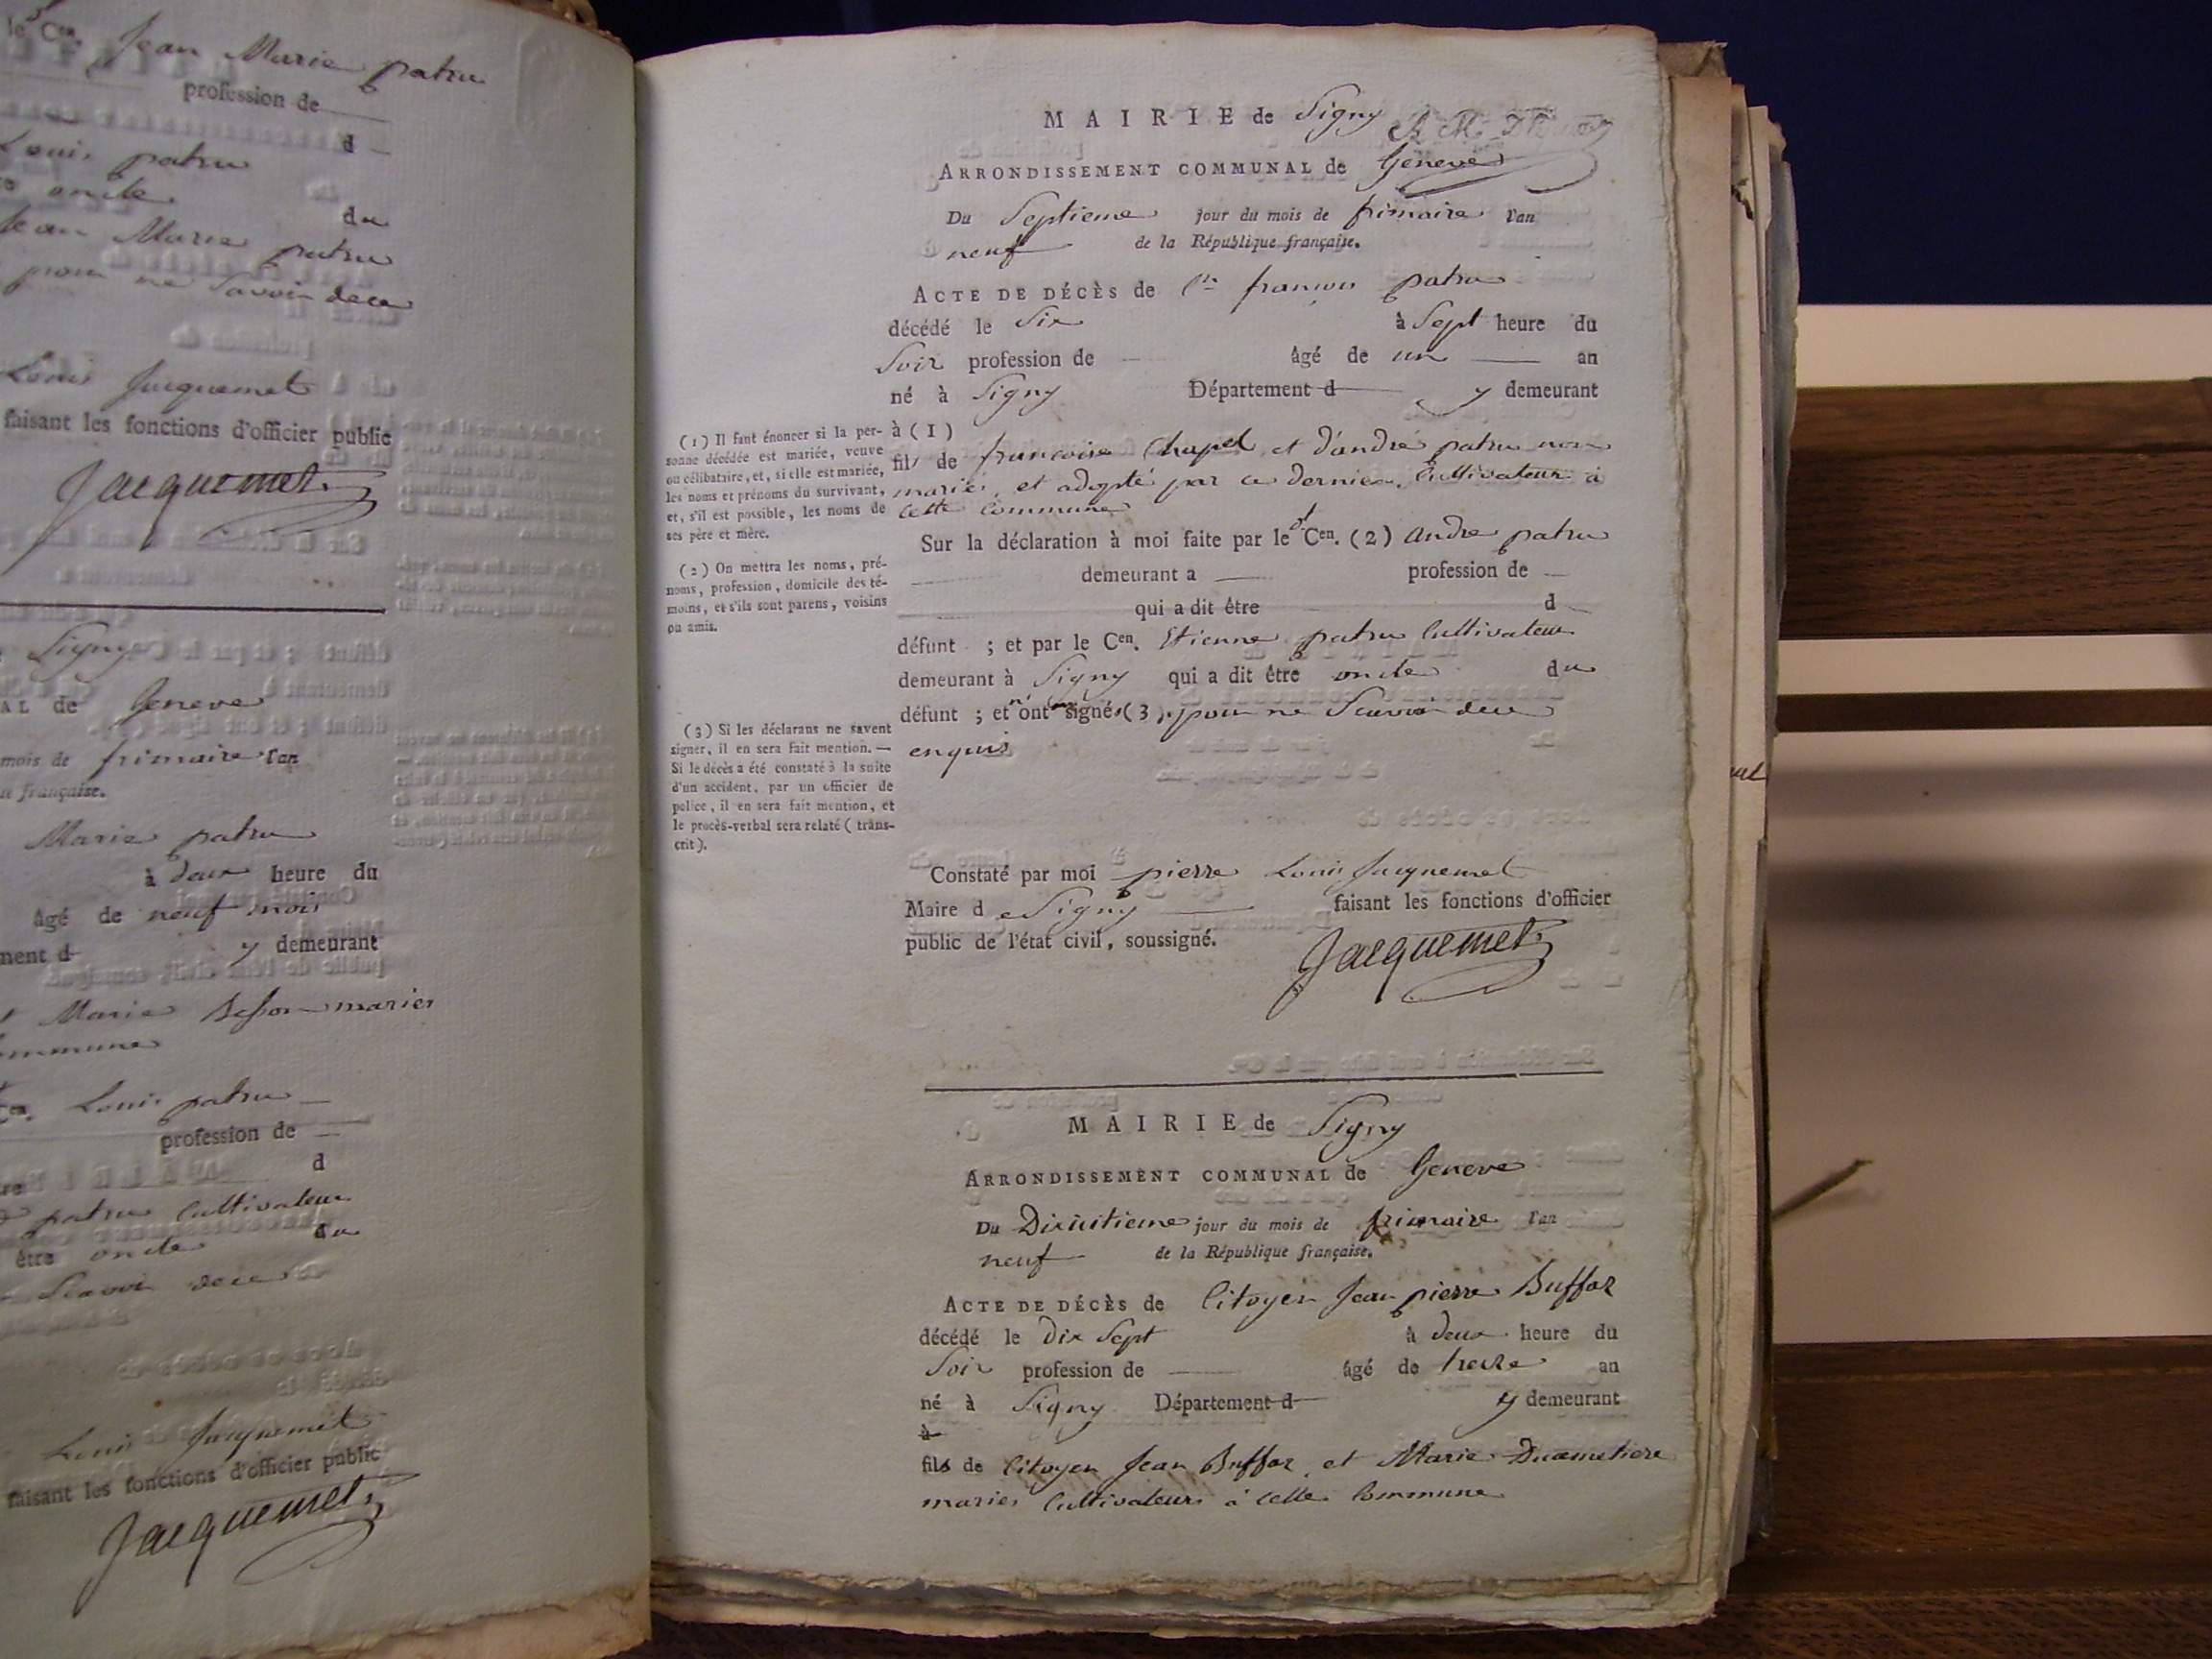 le Cen. Jean Marie patru
profession de
d
Louis patru
oncle
du
Jean Marie patru
pour ne Savoir dece
Louis Jacquemet
faisant les fonctions d'officier public
Jacquemet
Signy
AL de Geneve
mois de frimaire l'an
française.
Marie patru
à deux heure du
âgé de neuf mois
ment d y demeurant
Marie Besson maries
commune
Cen. Louis patru
profession de
d
patru Cultivateur
être oncle du
Scavoir dece
Louis Jacquemet
faisant les fonctions d'officier public
Jacquemet
MAIRIE de Signy
ARRONDISSEMENT COMMUNAL de Geneve
Du Septieme jour du mois de frimaire l'an
neuf de la République française.
ACTE DE DÉCÈS de Cen francois patru
décédé le Six à Sept heure du
Soir profession de âgé de un an
né à Signy Département d y demeurant
à (1)
fils de francoise Chapel et d'andré patru non
mariés, et adopté par ce dernier, Cultivateur à
cette commune
Sur la déclaration à moi faite par le dt Cen. (2) andre patru
demeurant a profession de
qui a dit être d
défunt ; et par le Cen. Etienne patru Cultivateur
demeurant à Signy qui a dit être oncle du
défunt ; et n'ont signés (3) pour ne Scavoir dece
enquis
(1) Il faut énoncer si la per-
sonne décédée est mariée, veuve
ou célibataire, et, si elle est mariée,
les noms et prénoms du survivant,
et, s'il est possible, les noms de
ses père et mère.
(2) On mettra les noms, pré-
noms, profession, domicile des té-
moins, et s'ils sont parens, voisins
ou amis.
(3) Si les déclarans ne savent
signer, il en sera fait mention. —
Si le décès a été constaté à la suite
d'un accident, par un officier de
police, il en sera fait mention, et
le procès-verbal sera relaté ( trans-
crit ).
Constaté par moi pierre Louis Jacquemet
Maire de Signy faisant les fonctions d'officier
public de l'état civil, soussigné.
Jacquemet
MAIRIE de Signy
ARRONDISSEMENT COMMUNAL de Geneve
Du Dixuitieme jour du mois de frimaire l'an
neuf de la République française.
ACTE DE DÉCÈS de Citoyen Jean pierre Buffaz
décédé le Dix Sept à deux heure du
Soir profession de âgé de treize an
né à Signy Département d y demeurant
à
fils de Citoyen Jean Buffaz et Marie Ducimetiere
maries Cultivateurs à cette Commune